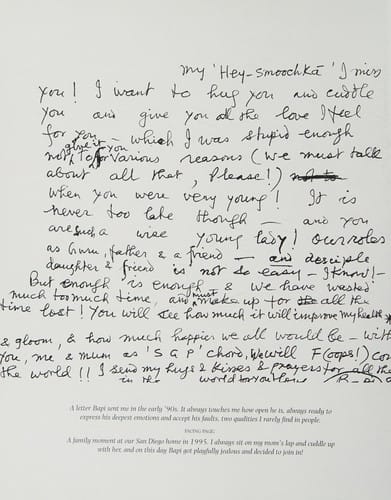 my 'Hey-Smoochkā' I miss
you! I want to hug you and cuddle
you and give you all the love I feel
for you – which I was stupid enough
not to give it you for various reasons (we must talk
about all that, Please!)
when you were very young! It is
never too late though – and you
are such a wise young lady! Our roles
as Guru, father & a friend – and disciple
daughter & friend is not so easy – I know! –
But enough is enough & we have wasted
much too much time, and must make up for all the
time lost! You will see how much it will improve my health
& gloom, & how much happier we all would be – with
you, me & mum as 'S G P' chord, we will F (oops!) con
the world!! I send my hugs & kisses & prayers for all the
in the world for you
A letter Bapi sent me in the early '90s. It always touches me how open he is, always ready to
express his deepest emotions and accept his faults, two qualities I rarely find in people.
FACING PAGE:
A family moment at our San Diego home in 1995. I always sit on my mom's lap and cuddle up
with her, and on this day Bapi got playfully jealous and decided to join in!